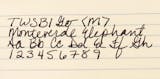 TWSBI Go <M>
Monteverde elephant
Aa Bb Cc Dd Ee Ff Gh
1 2 3 4 5 6 7 8 9